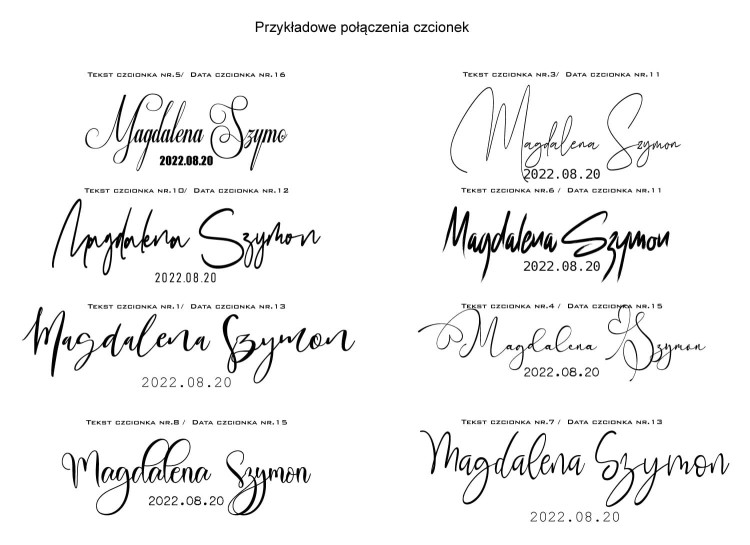 Przykładowe połączenia czcionek
TEKST CZCIONKA NR.5/ DATA CZCIONKA NR.16
Magdalena Szymo
2022.08.20
TEKST CZCIONKA NR.3/ DATA CZCIONKA NR.11
Magdalena Szymon
2022.08.20
TEKST CZCIONKA NR.10/ DATA CZCIONKA NR.12
Magdalena Szymon
2022.08.20
TEKST CZCIONKA NR.6 / DATA CZCIONKA NR.11
Magdalena Szymon
2022.08.20
TEKST CZCIONKA NR.1/ DATA CZCIONKA NR.13
Magdalena Szymon
2022.08.20
TEKST CZCIONKA NR.4 / DATA CZCIONKA NR.15
Magdalena Szymon
2022.08.20
TEKST CZCIONKA NR.8 / DATA CZCIONKA NR.15
Magdalena Szymon
2022.08.20
TEKST CZCIONKA NR.7 / DATA CZCIONKA NR.13
Magdalena Szymon
2022.08.20